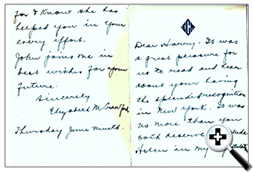 Dear Harry: It was
a great pleasure for
us to read and learn
about your having
the splendid recognition
in New York. It was
no more than you
both deserve
Helen in my
for I know she has
helped you in your
every effort.
John joins me in
best wishes for your
future.
Sincerely
Elizabeth M.
Thursday June ninth.